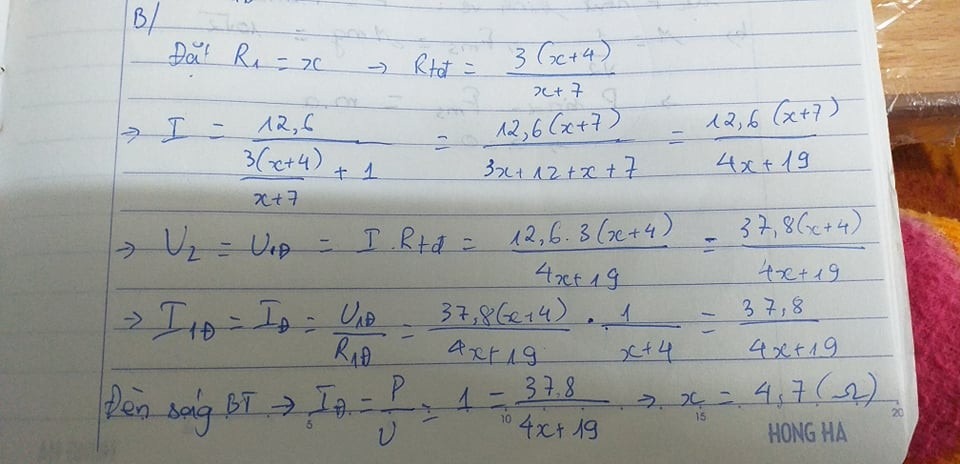 B/
Đặt R₁ = x → Rtđ = 3(x+4) / x+7
→ I = 12,6 / (3(x+4) / x+7 + 1) = 12,6(x+7) / 3x+12+x+7 = 12,6(x+7) / 4x+19
→ U₂ = U₁Đ = I.Rtđ = 12,6.3(x+4) / 4x+19 = 37,8(x+4) / 4x+19
→ I₁Đ = IĐ = U₁Đ / R₁Đ = 37,8(x+4) / 4x+19 . 1 / x+4 = 37,8 / 4x+19
Đèn ság BT → IĐ = P / U = 1 = 37.8 / 4x+19 → x = 4,7 (Ω)
5 10 15 20
HONG HA